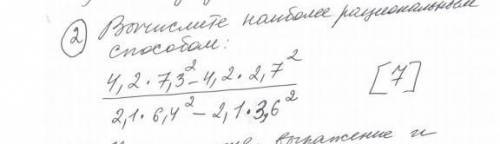 ② Вычислите наиболее рациональным
способом:
4,2 * 7,3² - 4,2 * 2,7²
2,1 * 6,4² - 2,1 * 3,6²
[7]
выражение и